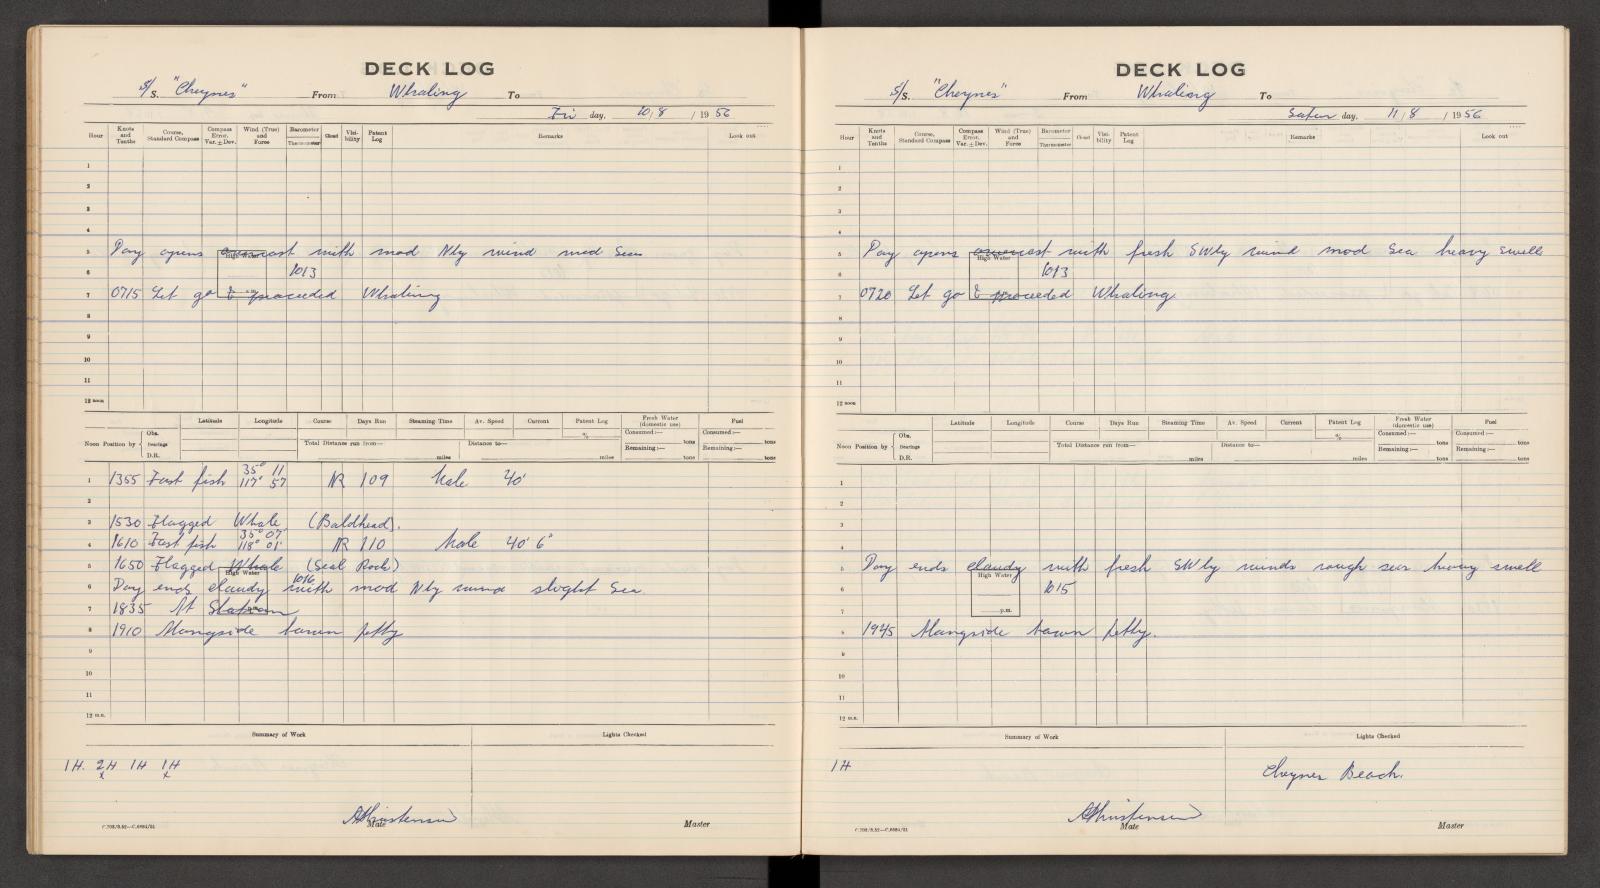 DECK LOG
S/S. "Cheynes" From Whaling To
Fri day. 10/8 /19 56
Hour Knots and Tenths Course, Standard Compass Compass Error. Var. ± Dev. Wind (True) and Force Barometer Thermometer Cloud Visibility Patent Log Remarks Look out
1
2
3
4
5 Day opens overcast with mod Nly wind mod Sea
High Water
6 1013
7 0715 Let go & proceeded Whaling
8
9
10
11
12 noon
Latitude Longitude Course Days Run Steaming Time Av. Speed Current Patent Log Fresh Water (domestic use) Fuel
% Consumed:— tons Consumed:— tons
Noon Position by Obs. Bearings D.R. Total Distance run from— miles Distance to— miles Remaining:— tons Remaining:— tons
1 1355 Fast fish 35° 11 117° 57 NR 109 Male 40'
2
3 1530 Flagged Whale (Baldhead).
4 1610 Fast fish 35° 07' 118° 01' NR 110 Male 40' 6"
5 1650 Flagged Whale (Seal Rock)
High Water
6 Day ends cloudy with mod Nly wind slight Sea
1016
7 1835 At Station
8 1910 Alongside town jetty
9
10
11
12 m.n.
Summary of Work Lights Checked
1H. 2H 1H 1H
x x
AChristensen
Mate Master
DECK LOG
S/S. "Cheynes" From Whaling To
Satur day. 11/8 /19 56
Hour Knots and Tenths Course, Standard Compass Compass Error. Var. ± Dev. Wind (True) and Force Barometer Thermometer Cloud Visibility Patent Log Remarks Look out
1
2
3
4
5 Day opens overcast with fresh SWly wind mod Sea heavy swell
High Water
6 1013
7 0720 Let go & proceeded Whaling
8
9
10
11
12 noon
Latitude Longitude Course Days Run Steaming Time Av. Speed Current Patent Log Fresh Water (domestic use) Fuel
% Consumed:— tons Consumed:— tons
Noon Position by Obs. Bearings D.R. Total Distance run from— miles Distance to— miles Remaining:— tons Remaining:— tons
1
2
3
4
5 Day ends cloudy with fresh SWly winds rough sea heavy swell
High Water
6 1015
7 p.m.
8 1945 Alongside town jetty.
9
10
11
12 m.n.
Summary of Work Lights Checked
1H Cheynes Beach.
AChristensen
Mate Master